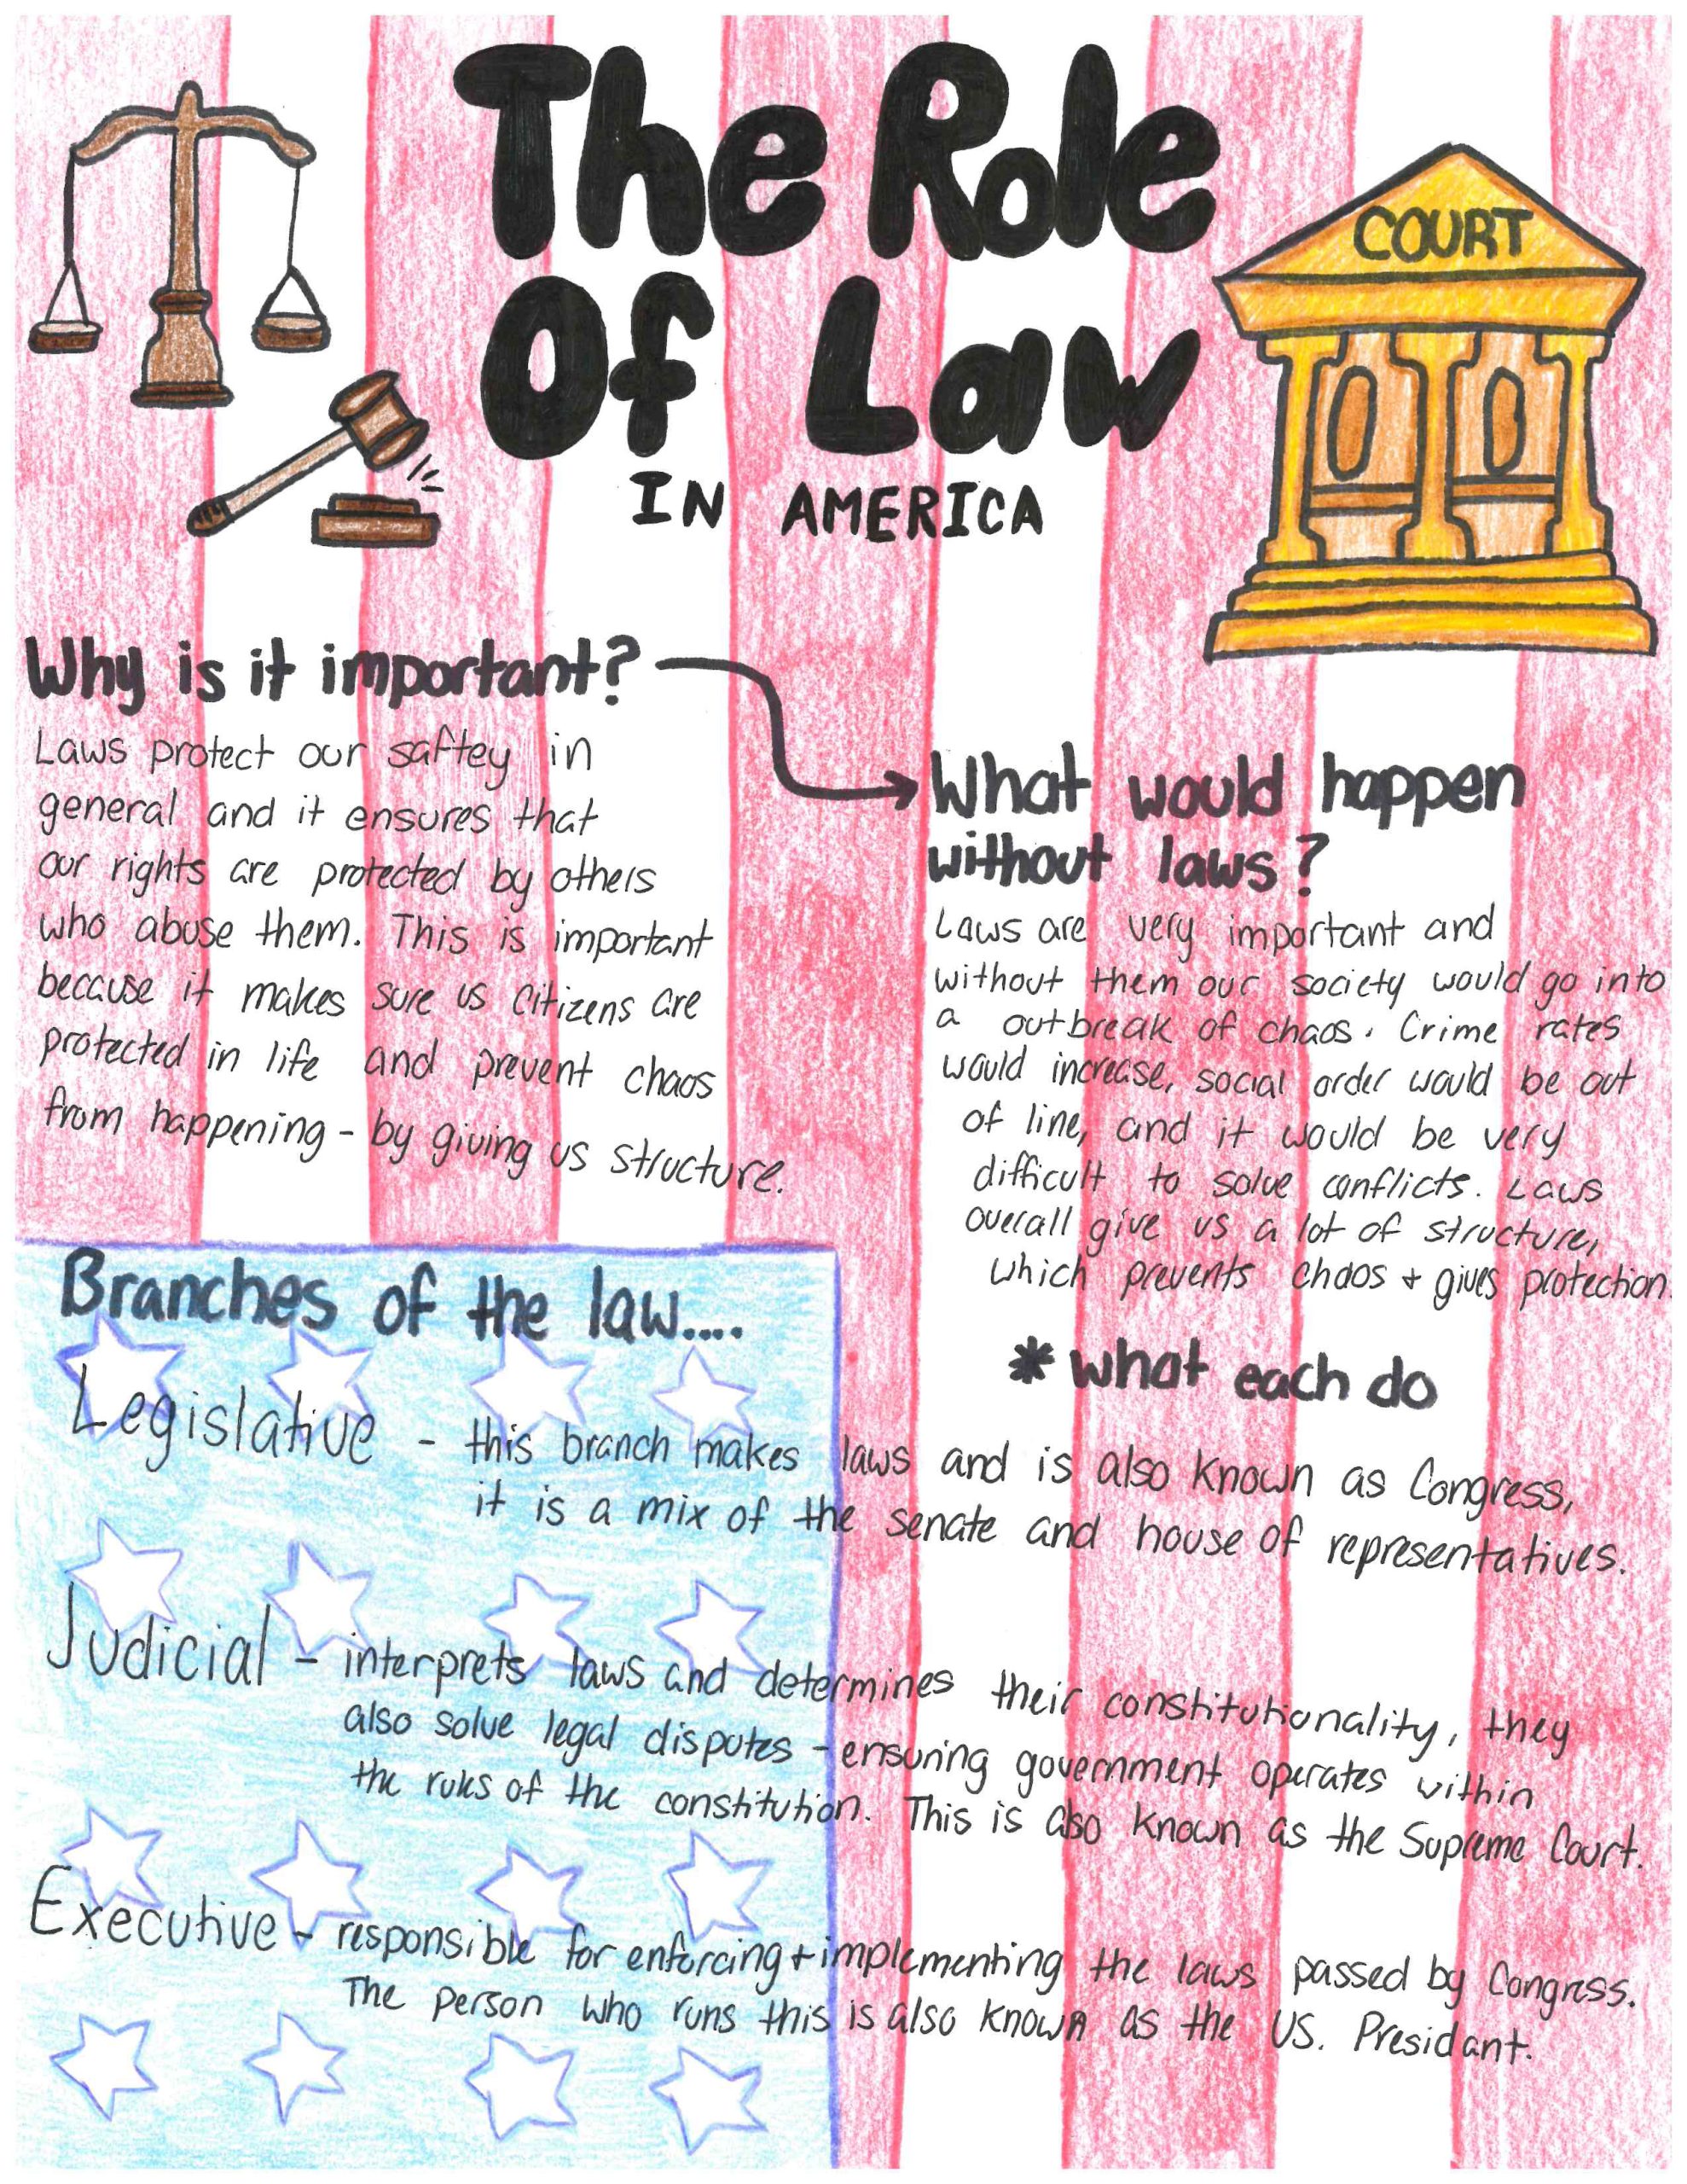 The Role
Of Law
IN AMERICA
COURT
Why is it important?
Laws protect our saftey in
general and it ensures that
our rights are protected by others
who abuse them. This is important
because it makes sure us citizens are
protected in life and prevent chaos
from happening - by giving us structure.
What would happen
without laws?
Laws are very important and
without them our society would go into
a outbreak of chaos. Crime rates
would increase, social order would be out
of line, and it would be very
difficult to solve conflicts. Laws
overall give us a lot of structure,
which prevents chaos + gives protection.
Branches of the law....
* what each do
Legislative - this branch makes laws and is also known as Congress,
it is a mix of the senate and house of representatives.
Judicial - interprets laws and determines their constitutionality, they
also solve legal disputes - ensuring government operates within
the rules of the constitution. This is also known as the Supreme Court.
Executive - responsible for enforcing + implementing the laws passed by Congress.
The person who runs this is also known as the US. Presidant.